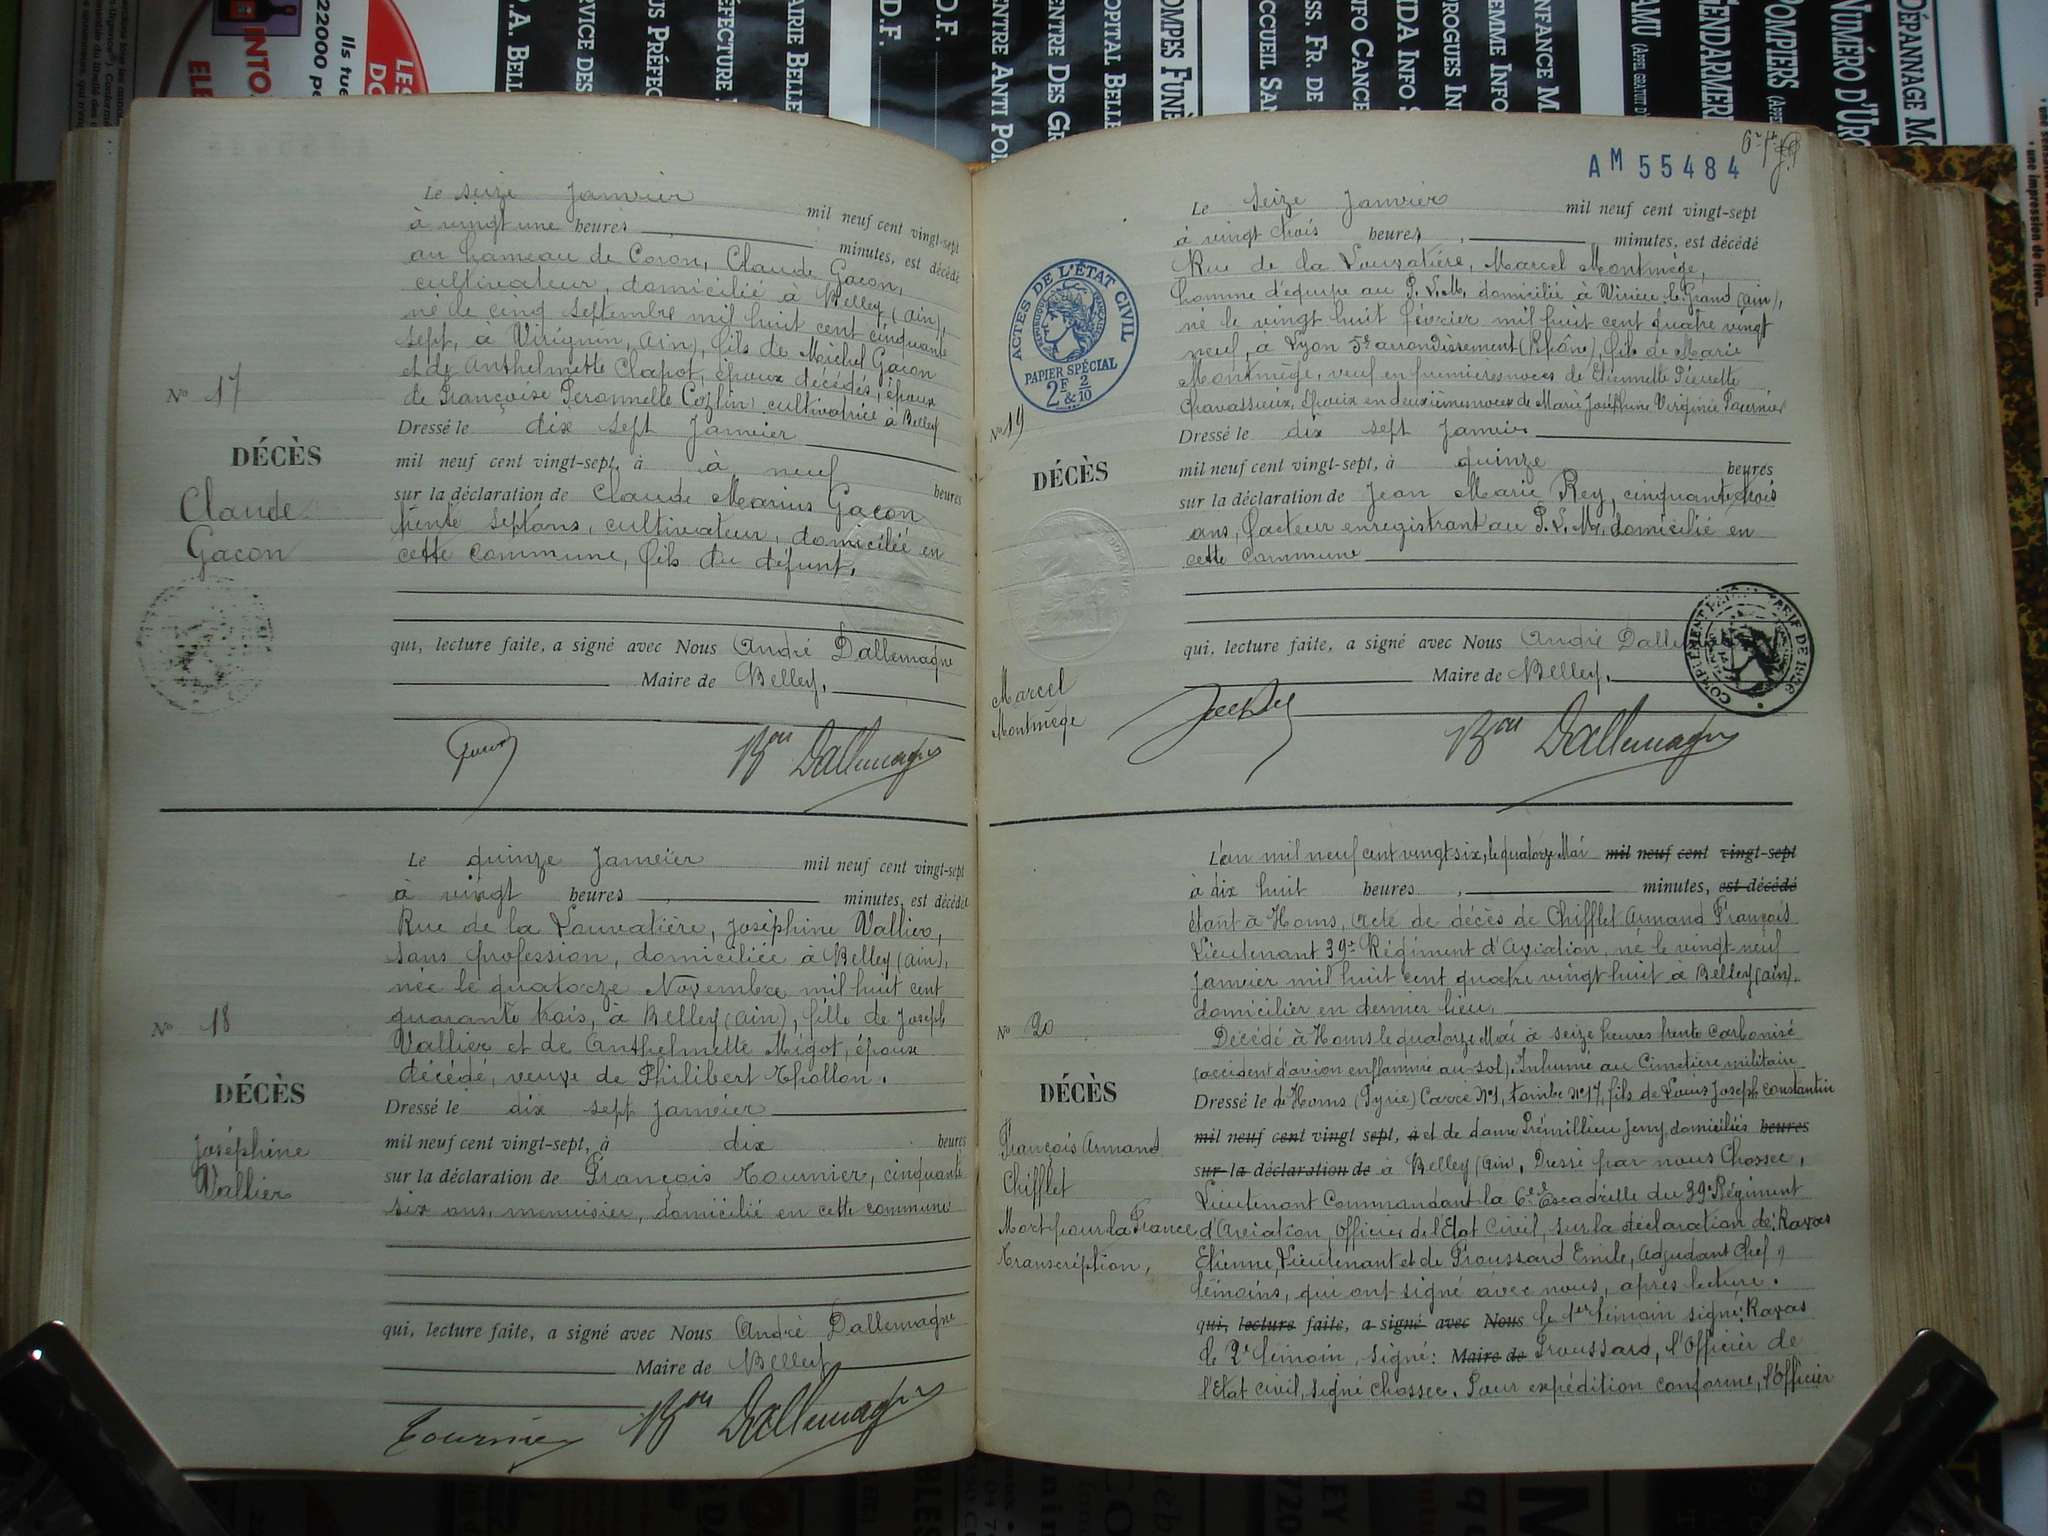 LES
INTO
Ils tue
22000 pe
P.A. BELL
RVICE DES
US PRÉFEC
ÉFECTURE
AIRIE BELLE
D.F.
D.F.
ENTRE ANTI POI
ENTRE DES GR
OPITAL BELLE
OMPES FUNÈ
CCUEIL SAN
SS. FR. DE
NFO CANCE
IDA INFO S
ROGUES IN
EMME INFO
NFANCE M
AMU (APPEL GRATUIT D
GENDARMERI
POMPIERS (APPE
NUMÉRO D'URG
DÉPANNAGE MO
une impression de fièvre...
Le seize Janvier mil neuf cent vingt-sept
à vingt une heures , minutes, est décédé
au hameau de Coron, Claude Gacon,
cultivateur, domicilié à Belley (Ain),
né le cinq Septembre mil huit cent cinquante
sept, à Virignin, (Ain), fils de Michel Gacon
et de Anthelmette Clapot, époux décédés, époux
de Françoise Peronnelle Cozlin cultivatrice à Belley
No 17
Dressé le dix sept Janvier
DÉCÈS
mil neuf cent vingt-sept, à à neuf heures
Claude
Gacon
sur la déclaration de Claude Marius Gacon
trente sept ans, cultivateur, domiciliée en
cette commune, fils du défunt.
qui, lecture faite, a signé avec Nous André Dallemagne
Maire de Belley.
Bon Dallemagne
Le quinze Janvier mil neuf cent vingt-sept
à vingt heures , minutes, est décédé
Rue de la Louvatière, Joséphine Vallier,
sans profession, domiciliée à Belley (Ain),
née le quatorze Novembre mil huit cent
quarante trois, à Belley (Ain), fille de Joseph
Vallier et de Anthelmette Migot, époux
décédé, veuve de Philibert Thollon.
No 18
DÉCÈS
Joséphine
Vallier
Dressé le dix sept Janvier
mil neuf cent vingt-sept, à dix heures
sur la déclaration de François Tournier, cinquante
six ans, menuisier, domicilié en cette commune
qui, lecture faite, a signé avec Nous André Dallemagne
Maire de Belley
Tournier Bon Dallemagne
AM 55484
ACTES DE L'ÉTAT CIVIL
RÉPUBLIQUE FRANÇAISE
PAPIER SPÉCIAL
2F & 2/10
Le Seize Janvier mil neuf cent vingt-sept
à vingt trois heures , minutes, est décédé
Rue de la Louvatière, Marcel Montmège,
homme d'équipe au P.L.M. domicilié à Virieu le Grand (Ain),
né le vingt huit février mil huit cent quatre vingt
neuf, à Lyon 5e arrondissement (Rhône), fils de Marie
Montmège, veuf en premières noces de Etiennette Pierrette
Chavassieux, époux en deuxièmes noces de Marie Joséphine Virginie Fournier
No 19
DÉCÈS
Marcel
Montmège
Dressé le dix sept Janvier
mil neuf cent vingt-sept, à quinze heures
sur la déclaration de Jean Marie Rey, cinquante trois
ans, facteur enregistrant au P.L.M. domicilié en
cette commune
qui, lecture faite, a signé avec Nous André Dalle
Maire de Belley.
COMPLÉMENT TARIF DE 1926
Bon Dallemagne
L'an mil neuf cent vingt six, le quatorze Mai mil neuf cent vingt-sept
à dix huit heures , minutes, est décédé
étant à Homs, acte de décès de Chifflet Armand François
Lieutenant 39e Régiment d'Aviation, né le vingt-neuf
Janvier mil huit cent quatre vingt huit à Belley (Ain).
domicilier en dernier lieu.
No 20
DÉCÈS
François Armand
Chifflet
Mort pour la France
Transcription,
Décédé à Homs le quatorze Mai à seize heures trente carbonisé
(accident d'avion enflammé au sol). Inhumé au Cimetière militaire
Dressé le de Homs (Syrie) Carré No 1, tombe No 17, fils de Louis Joseph Constantin
mil neuf cent vingt sept, à et de dame Prémillieu Jenny, domiciliés heures
sur la déclaration de à Belley (Ain). Dressé par nous Chossec,
Lieutenant Commandant la 6e Escadrille du 39e Régiment
d'Aviation, Officier de l'Etat Civil, sur la déclaration de: Ravas
Etienne, Lieutenant et de Proussard Emile, Adjudant Chef,
témoins, qui ont signé avec nous, après lecture.
qui, lecture faite, a signé avec Nous le 1er témoin signé: Ravas
le 2e témoin, signé: Maire de Proussard, l'Officier de
l'Etat civil, signé Chossec. Pour expédition conforme, l'Officier